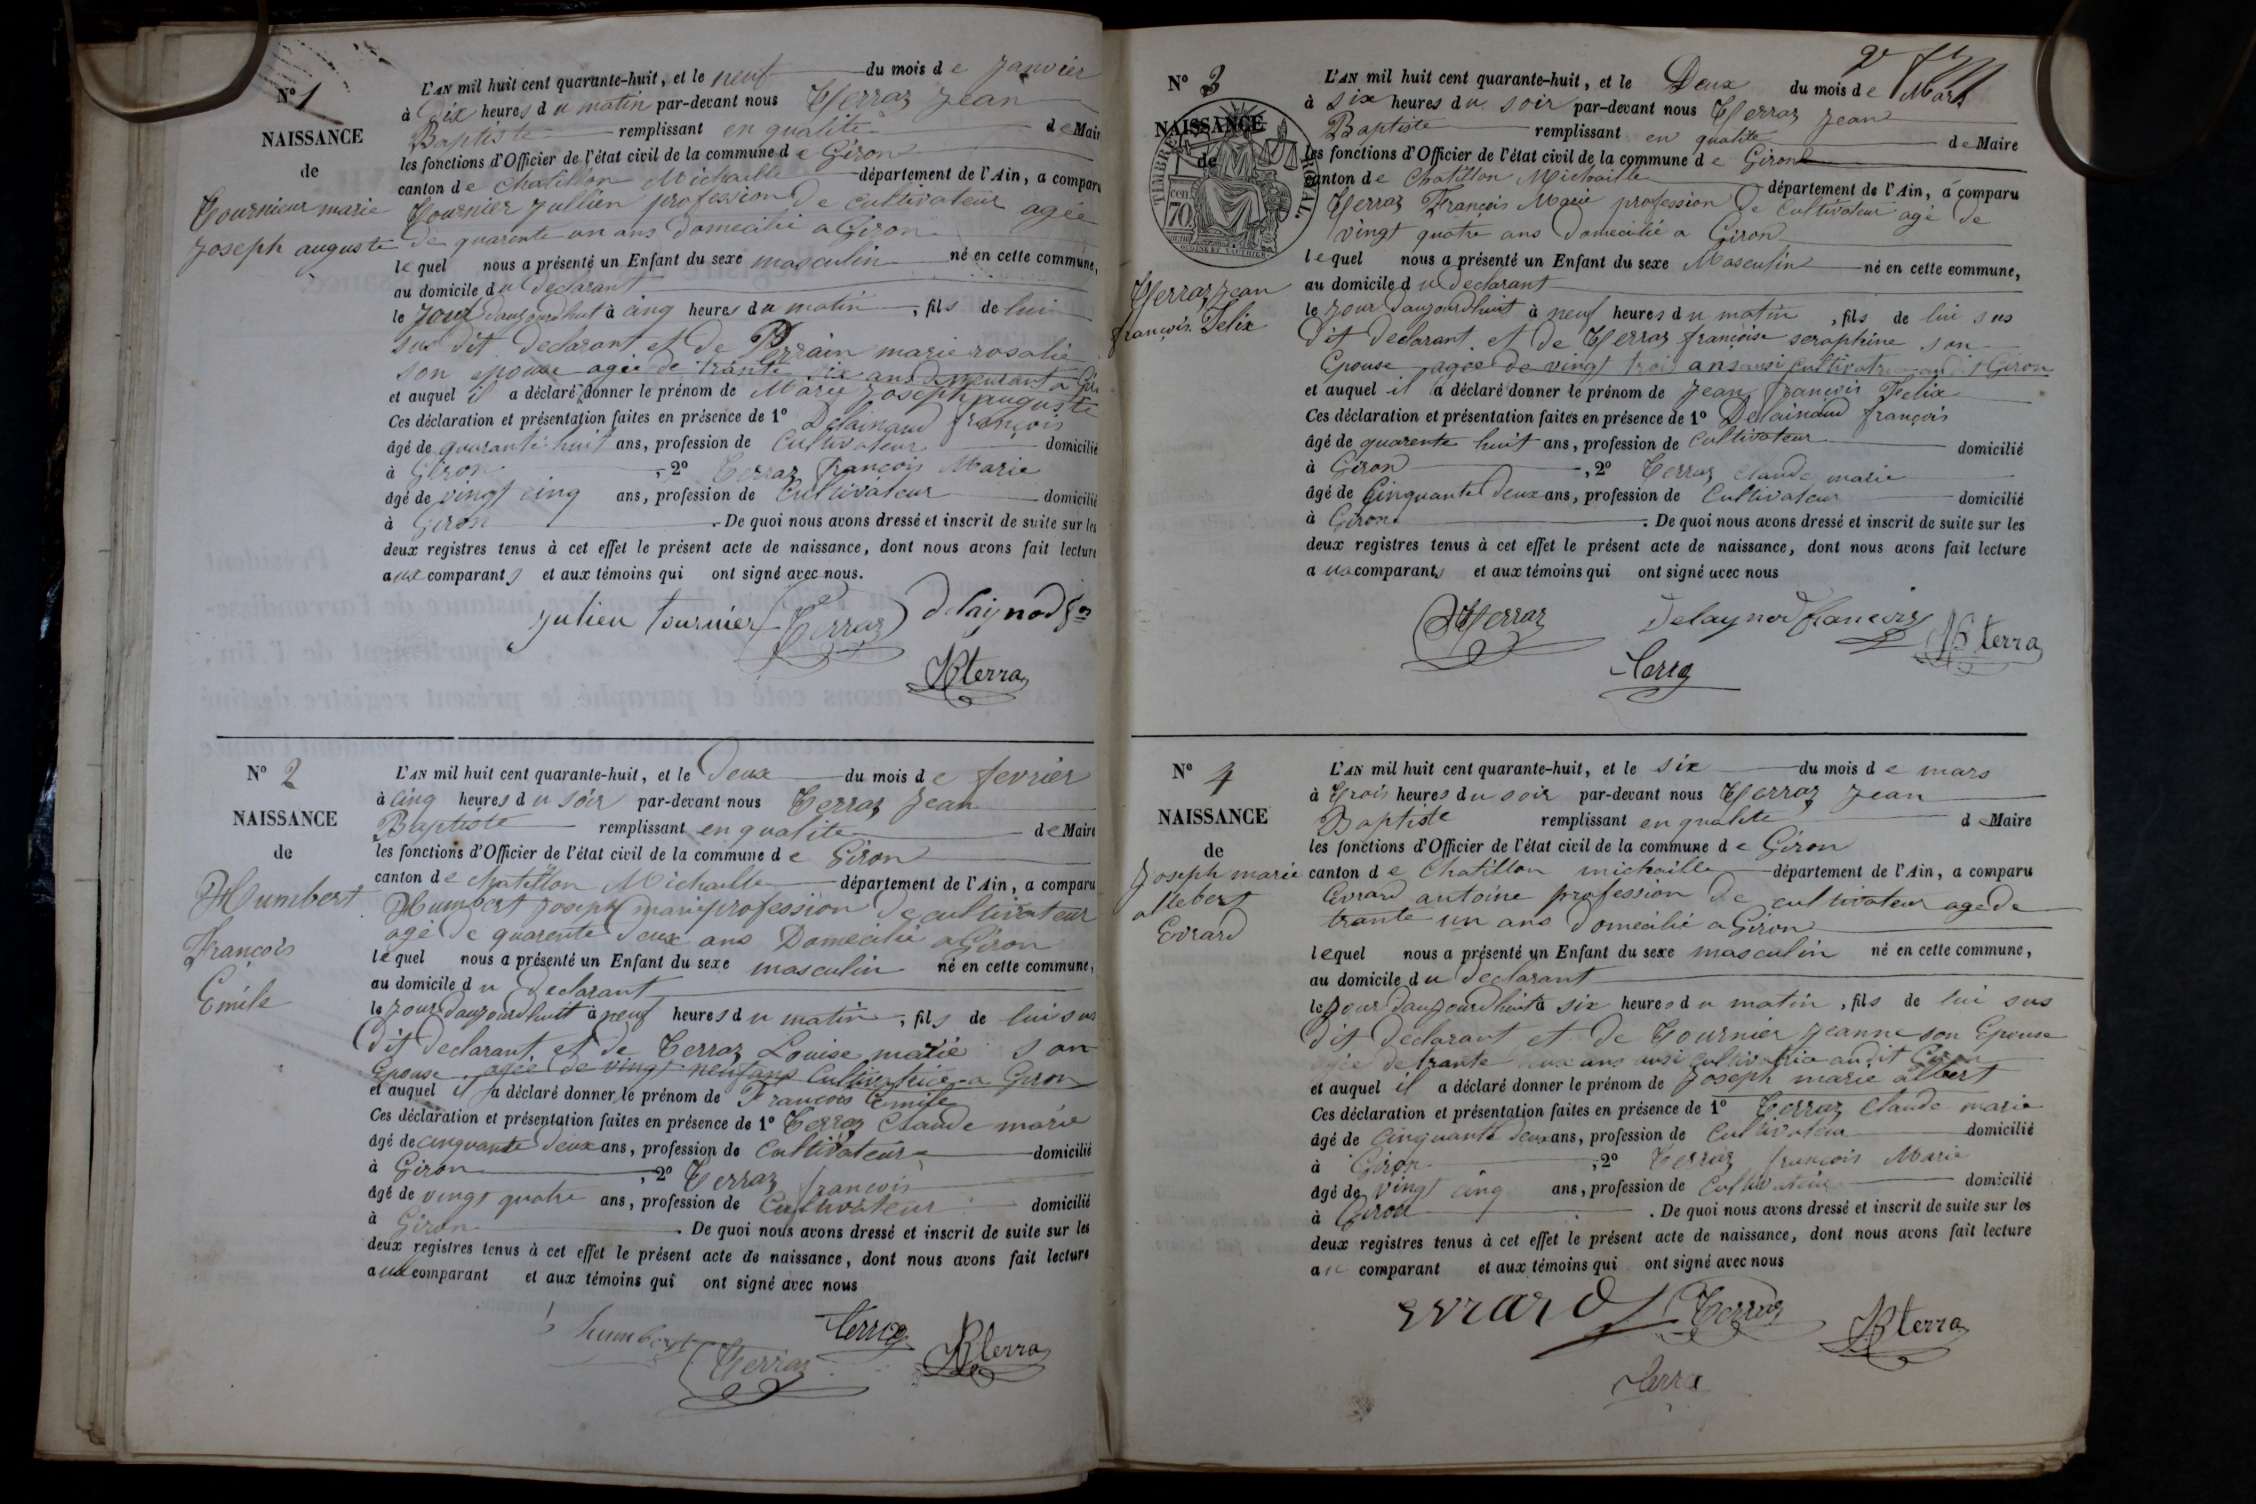 N° 1
NAISSANCE
de
Tournieur marie
Joseph auguste
L'AN mil huit cent quarante-huit, et le neuf du mois de janvier
à Dix heures du matin par-devant nous Terraz Jean
Baptiste remplissant en qualité de Mair
les fonctions d'Officier de l'état civil de la commune de Giron
canton de Chatillon Michaille département de l'Ain, a compar
Tournier Jullien profession de cultivateur agée
de quarente un ans domecilié a Giron
lequel nous a présenté un Enfant du sexe masculin né en cette commune,
au domicile du declarant
le jour daujourdhuit à cinq heures du matin, fils de lui
sus dit declarant et de Perrain marie rosalie
son epouse agée de trante six ans demeurant a Gi
et auquel il a déclaré donner le prénom de Marie Joseph auguste
Ces déclaration et présentation faites en présence de 1° Delainaud françois
âgé de quarante huit ans, profession de Cultivateur domicilié
à Giron, 2° Terraz françois Marie
âgé de vingt cinq ans, profession de Cultivateur domicilié
à Giron. De quoi nous avons dressé et inscrit de suite sur les
deux registres tenus à cet effet le présent acte de naissance, dont nous avons fait lecture
aux comparants et aux témoins qui ont signé avec nous.
julien tournier Terraz delaynod fs
JB terra
N° 2
NAISSANCE
de
Humbert
François
Emile
L'AN mil huit cent quarante-huit, et le Deux du mois de fevrier
à cinq heures du soir par-devant nous Terraz Jean
Baptiste remplissant en qualite de Maire
les fonctions d'Officier de l'état civil de la commune de Giron
canton de chatillon Michaille département de l'Ain, a comparu
Humbert Joseph marie profession de cultivateur
age de quarente deux ans Domecilié a Giron
lequel nous a présenté un Enfant du sexe masculin né en cette commune,
au domicile du declarant
le jour daujourdhuit à neuf heures du matin, fils de lui sus
dit declarant et de Terraz Louise marie son
Epouse agée de vingt neuf ans Cultivatrice a Giron
et auquel il a déclaré donner le prénom de François Emile
Ces déclaration et présentation faites en présence de 1° Terraz Claude marie
âgé de cinquante deux ans, profession de Cultivateur domicilié
à Giron, 2° Terraz françois
âgé de vingt quatre ans, profession de Cultivateur domicilié
à Giron. De quoi nous avons dressé et inscrit de suite sur les
deux registres tenus à cet effet le présent acte de naissance, dont nous avons fait lecture
aux comparant et aux témoins qui ont signé avec nous
humbert Terraz JB terra
Terraz
N° 3
NAISSANCE
de
TIMBRE ROYAL
70 cen
Terraz Jean
françois Felix
L'AN mil huit cent quarante-huit, et le Deux du mois de Mars
à six heures du soir par-devant nous Terraz Jean
Baptiste remplissant en qualité de Maire
les fonctions d'Officier de l'état civil de la commune de Giron
canton de Chatillon Michaille département de l'Ain, a comparu
Terraz François Marie profession de Cultivateur agé de
vingt quatre ans domecilié a Giron
lequel nous a présenté un Enfant du sexe Masculin né en cette commune,
au domicile du declarant
le jour daujourdhuit à neuf heures du matin, fils de lui sus
dit declarant et de Terraz françoise seraphine son
Epouse agée de vingt trois ans ausi cultivatrice audit Giron
et auquel il a déclaré donner le prénom de Jean françois Felix
Ces déclaration et présentation faites en présence de 1° Delainaud françois
âgé de quarente huit ans, profession de Cultivateur domicilié
à Giron, 2° Terraz claude marie
âgé de Cinquante deux ans, profession de Cultivateur domicilié
à Giron. De quoi nous avons dressé et inscrit de suite sur les
deux registres tenus à cet effet le présent acte de naissance, dont nous avons fait lecture
aux comparants et aux témoins qui ont signé avec nous
Terraz Delaynod francois JB terra
N° 4
NAISSANCE
de
Joseph marie
allebert
Evrard
L'AN mil huit cent quarante-huit, et le six du mois de mars
à Trois heures du soir par-devant nous Terraz Jean
Baptiste remplissant en qualité de Maire
les fonctions d'Officier de l'état civil de la commune de Giron
canton de Chatillon michaille département de l'Ain, a comparu
Evrard antoine profession de cultivateur age de
trante un ans domecilié a Giron
lequel nous a présenté un Enfant du sexe masculin né en cette commune,
au domicile du declarant
le jour daujourdhuit à six heures du matin, fils de lui sus
dit declarant et de Tournier Jeanne son Epouse
agée de trante deux ans ausi cultivatrice audit Giron
et auquel il a déclaré donner le prénom de Joseph marie albert
Ces déclaration et présentation faites en présence de 1° Terraz Claude marie
âgé de Cinquante deux ans, profession de Cultivateur domicilié
à Giron, 2° Terraz françois Marie
âgé de vingt cinq ans, profession de Cultivateur domicilié
à Giron. De quoi nous avons dressé et inscrit de suite sur les
deux registres tenus à cet effet le présent acte de naissance, dont nous avons fait lecture
au comparant et aux témoins qui ont signé avec nous
Evrard Terraz JB terra